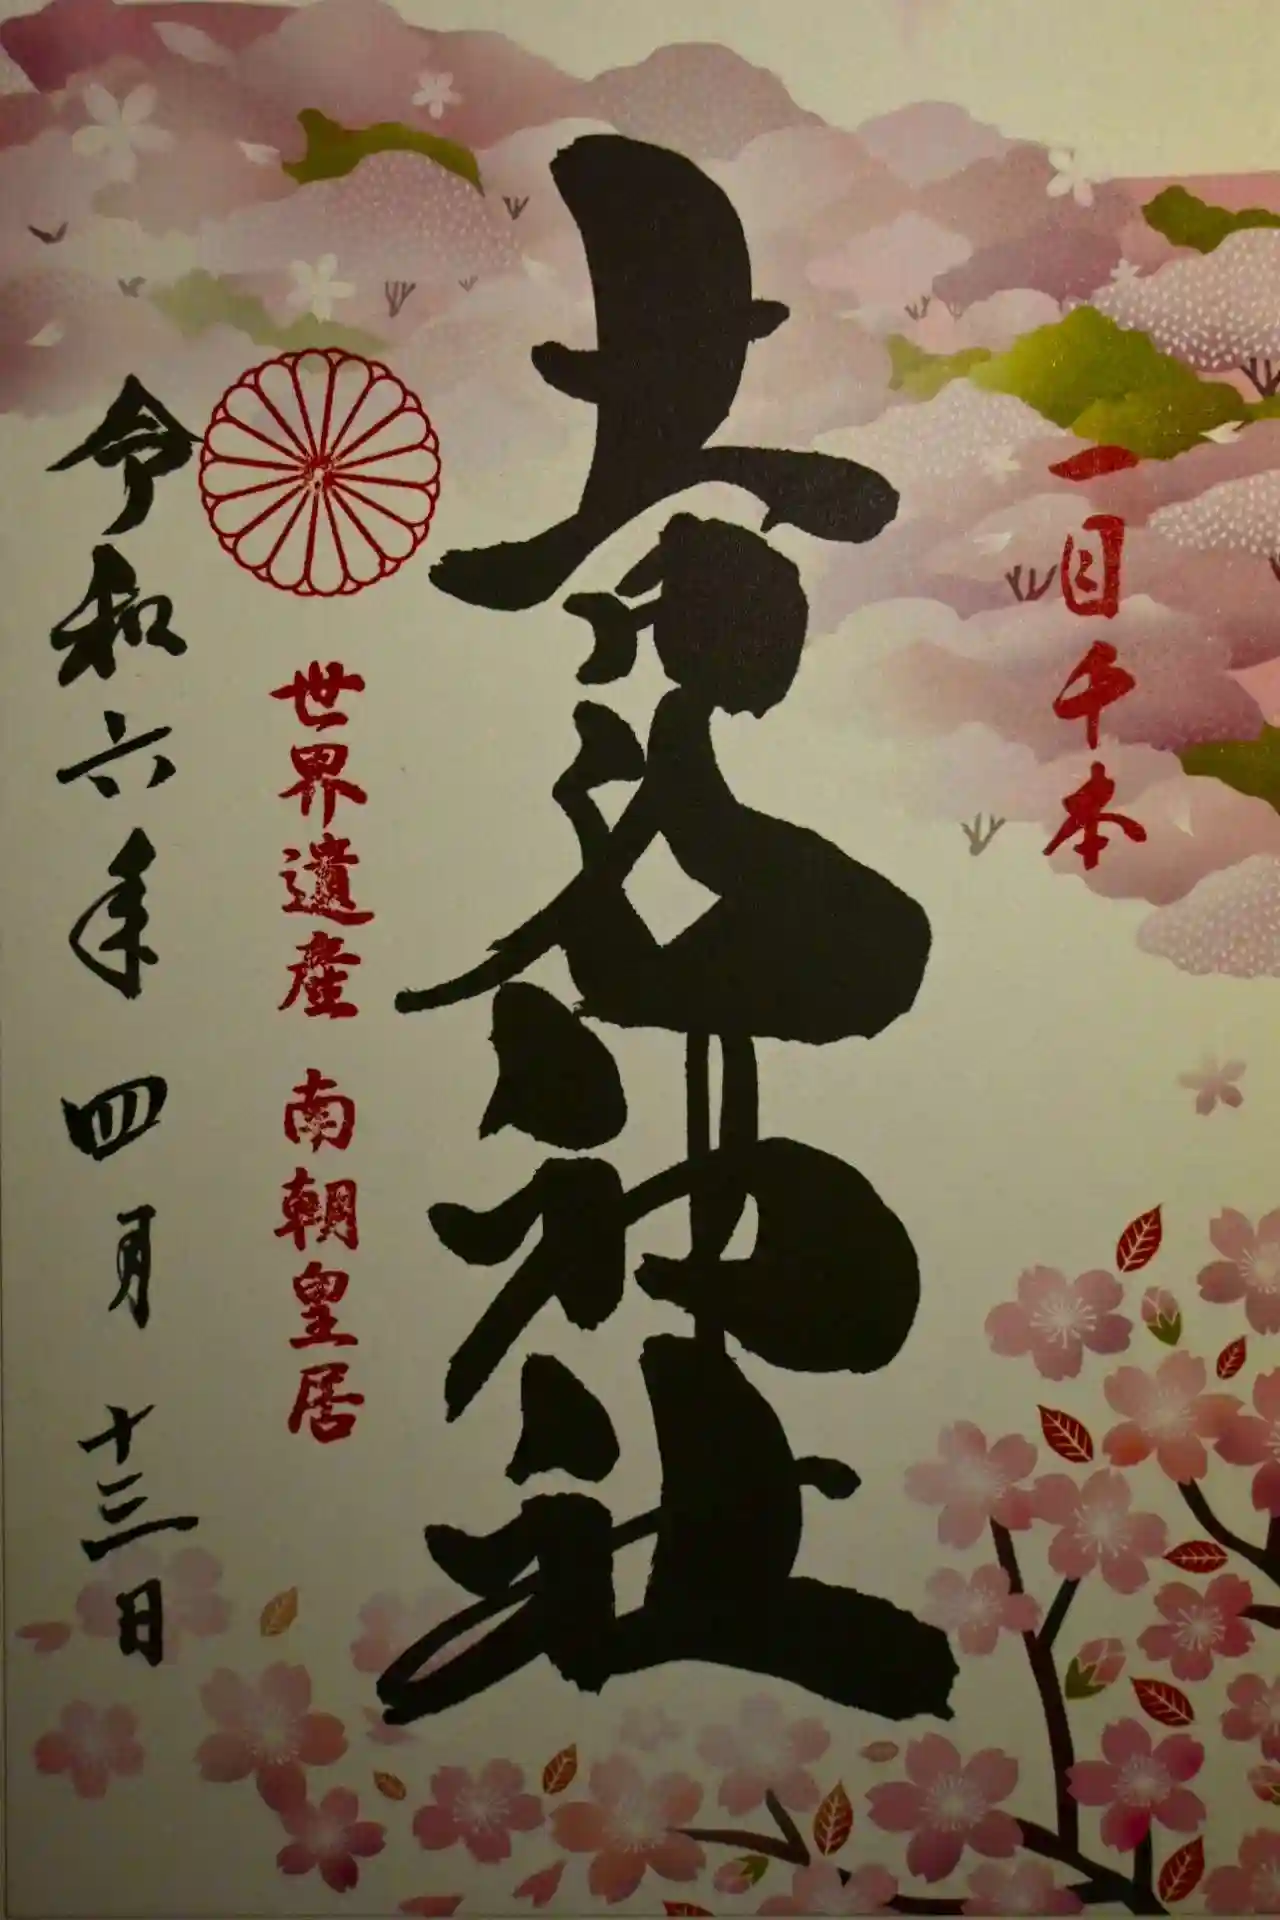 一目千本
吉水神社
世界遺産 南朝皇居
令和六年 四月 十三日